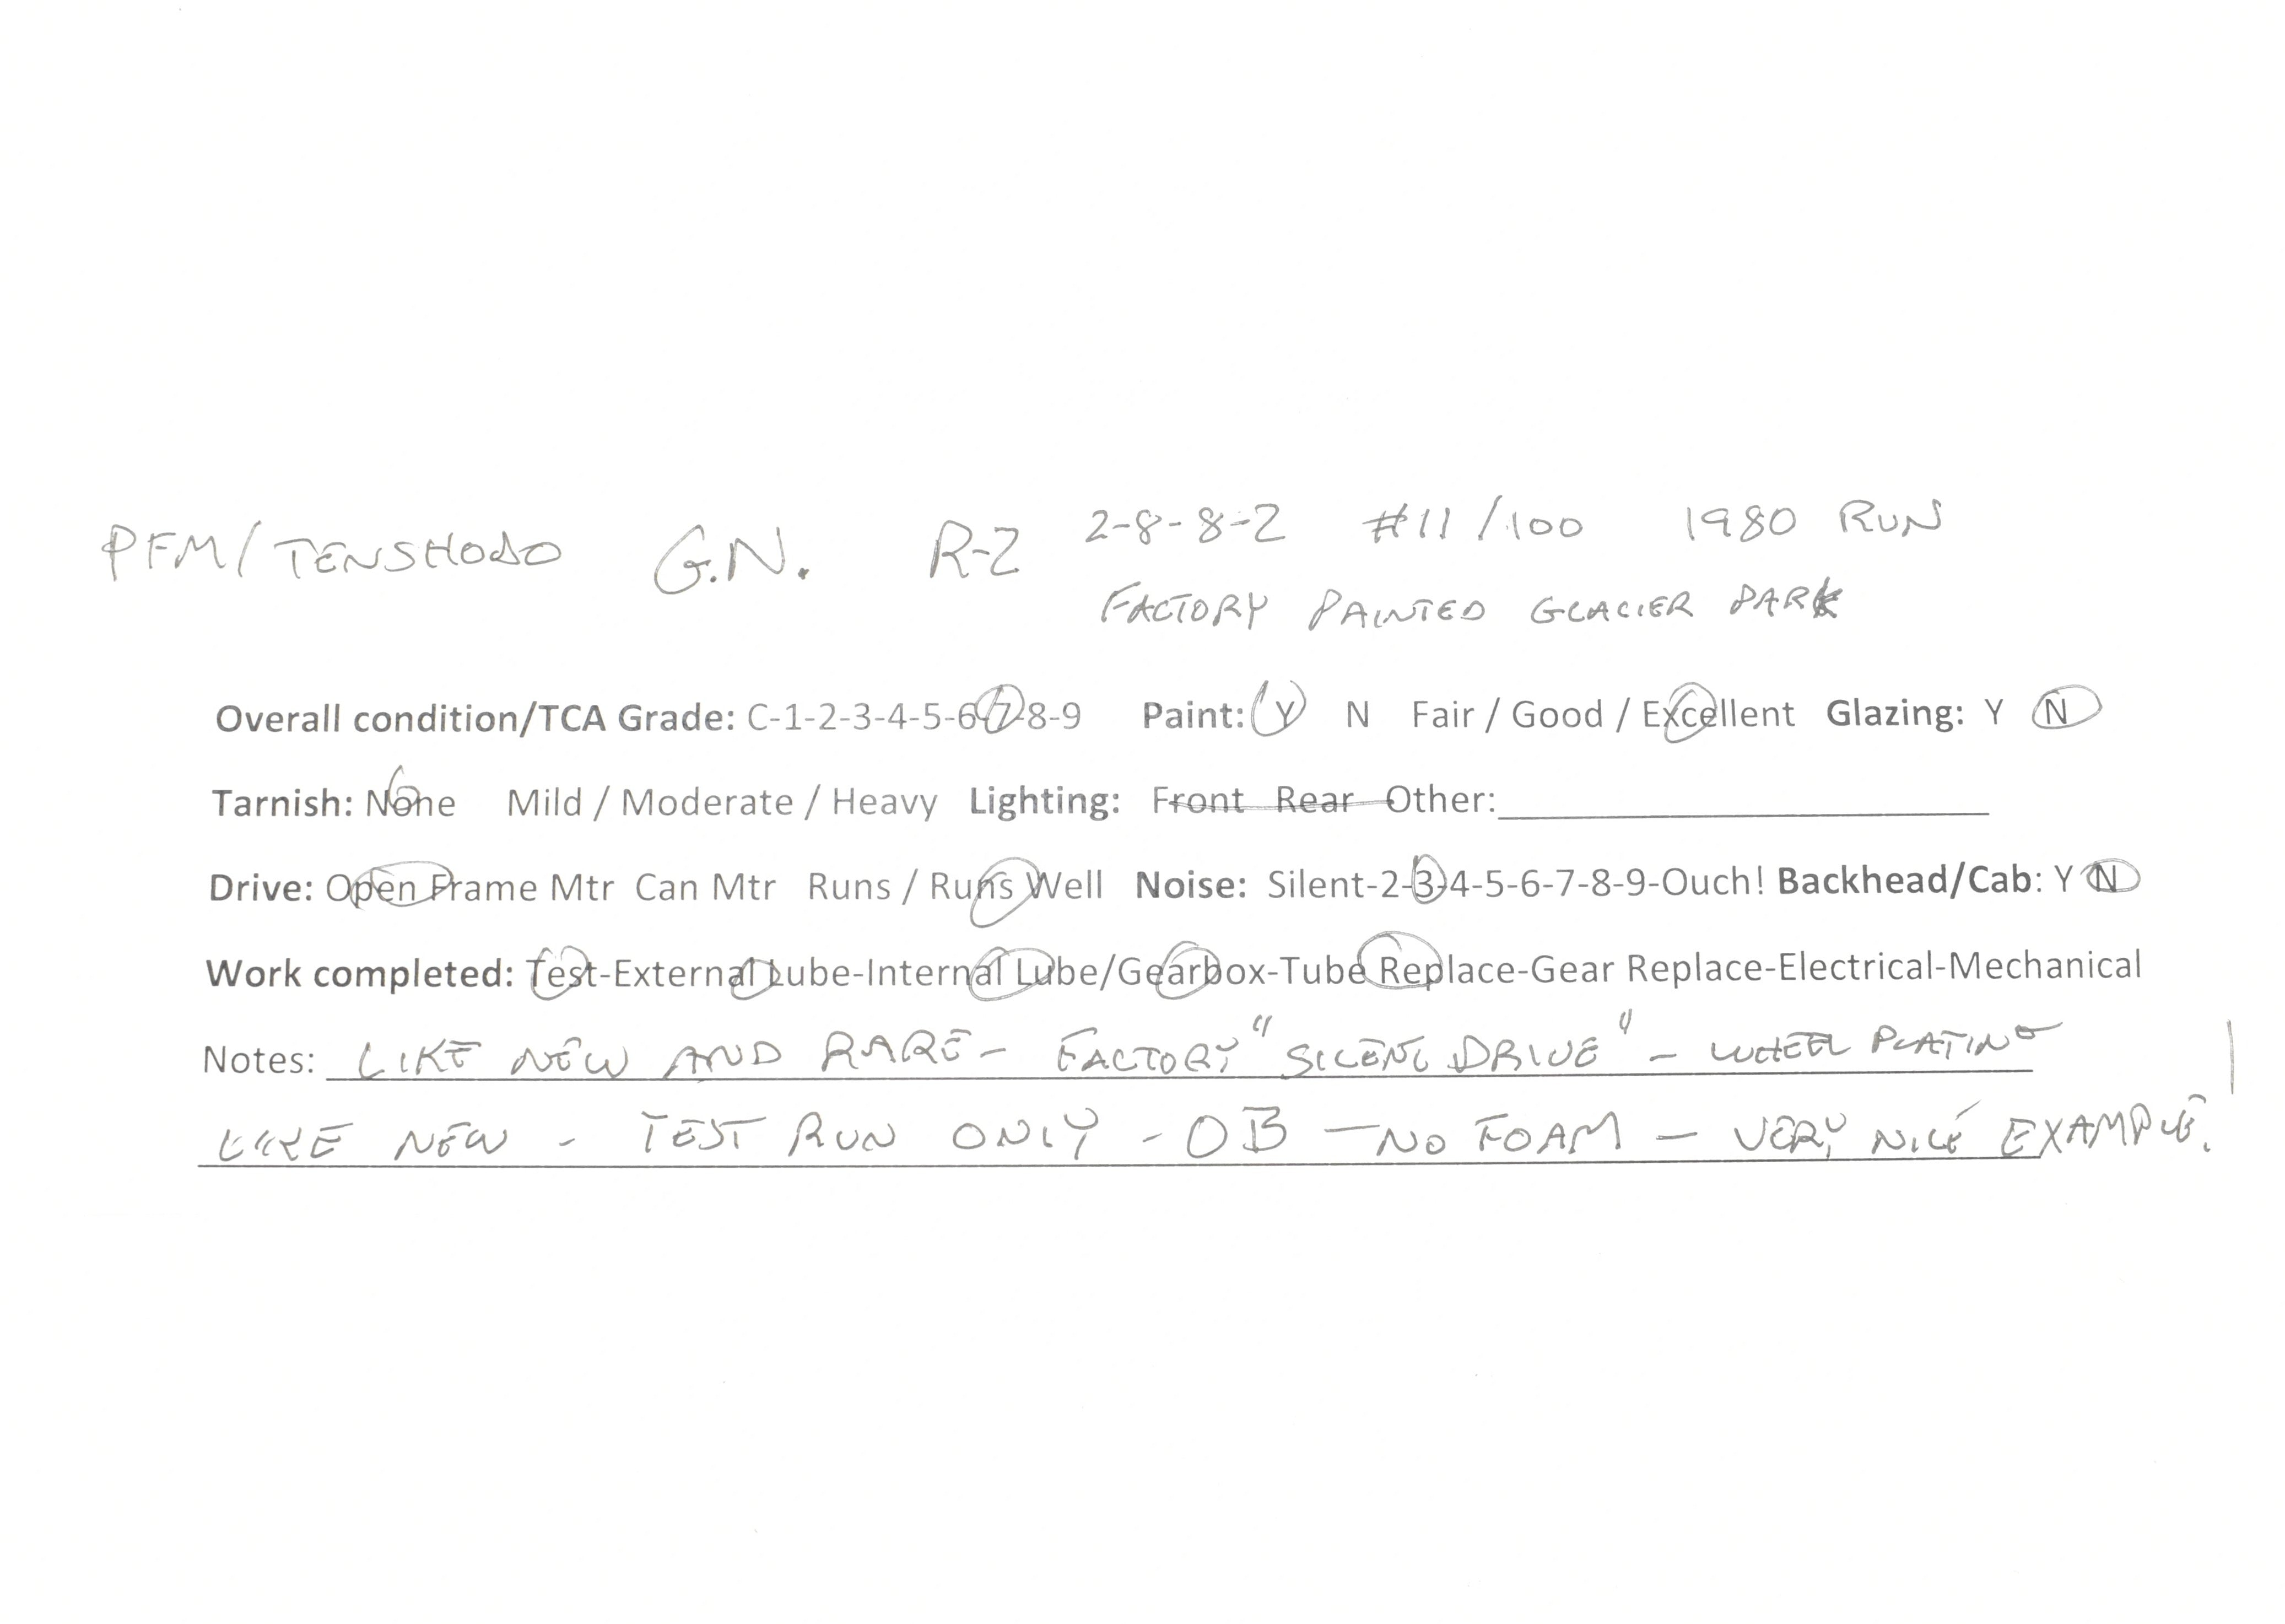 PFM/TENSHODO G.N. R-2 2-8-8-2 #11/100 1980 RUN
FACTORY PAINTED GLACIER PARK
Overall condition/TCA Grade: C-1-2-3-4-5-6-7-8-9 Paint: Y N Fair / Good / Excellent Glazing: Y N
Tarnish: None Mild / Moderate / Heavy Lighting: Front Rear Other:
Drive: Open Frame Mtr Can Mtr Runs / Runs Well Noise: Silent-2-3-4-5-6-7-8-9-Ouch! Backhead/Cab: Y N
Work completed: Test-External Lube-Internal Lube/Gearbox-Tube Replace-Gear Replace-Electrical-Mechanical
Notes: LIKE NEW AND RARE - FACTORY "SILENT DRIVE" - WHEEL PLATING
LIKE NEW - TEST RUN ONLY - OB - NO FOAM - VERY NICE EXAMPLE.